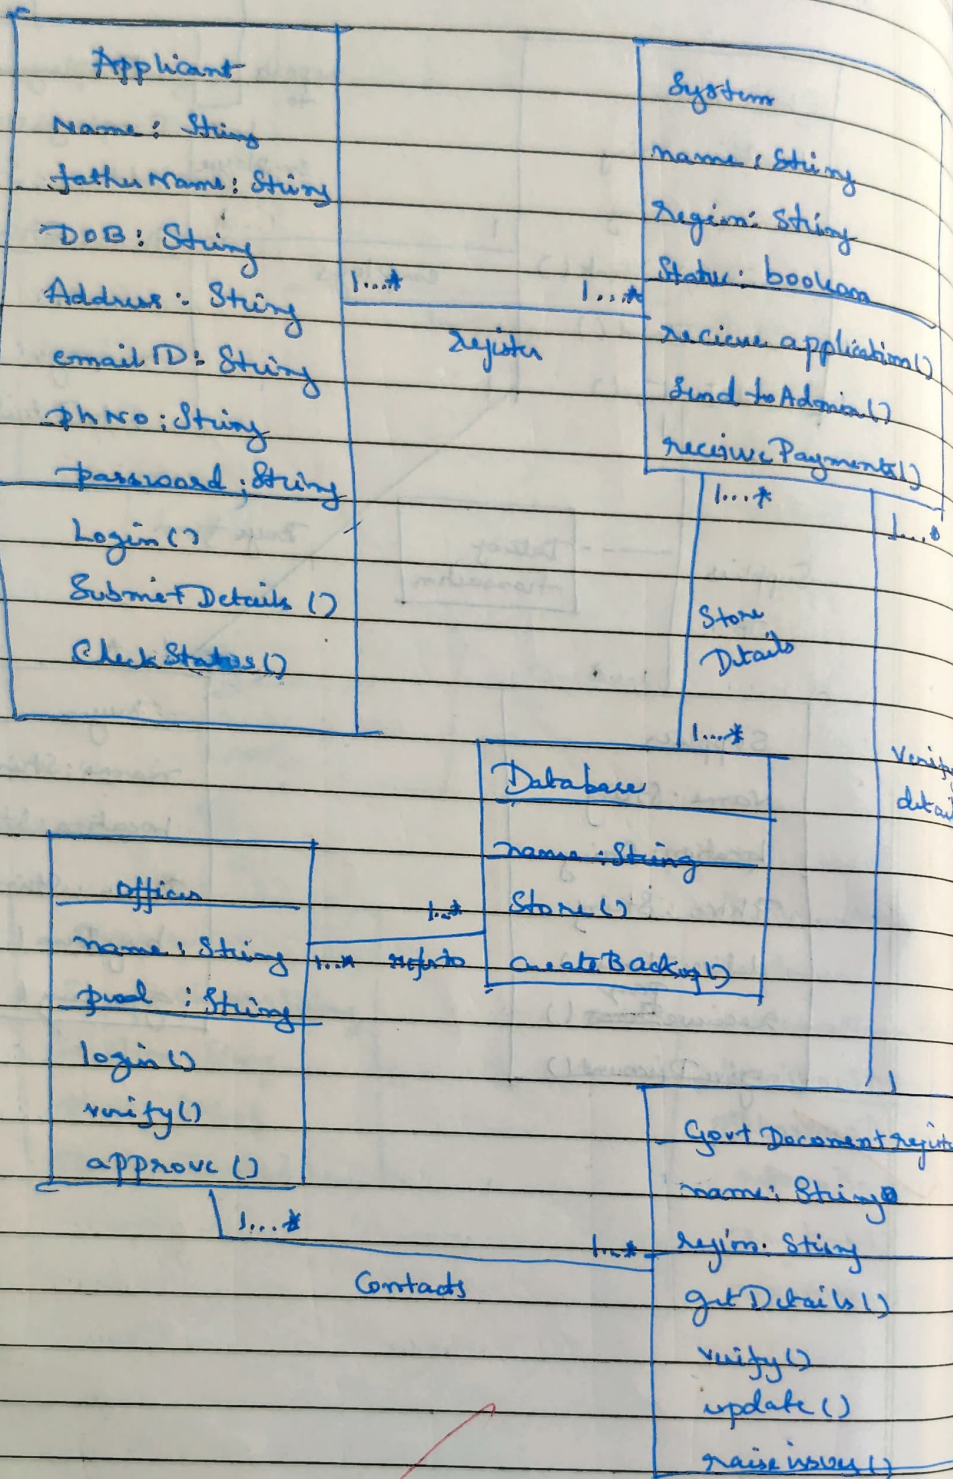 Applicant
Name: String
fatherName: String
DOB: String
Address: String
emailID: String
phNo: String
password: String
Login()
SubmitDetails()
CheckStatus()
1...*
1...*
register
System
name: String
region: String
Status: boolean
recieve application()
Send to Admin()
receivePayments()
1...*
1...*
Store
Details
1...*
verify
detai
Database
name: String
Store()
createBackup()
Officer
name: String
: String
login()
verify()
approve()
1..*
1...* refer to
1
Govt Document regist
name: String
region: String
getDetails()
verify()
update()
raise issues()
1...*
1...*
Contacts